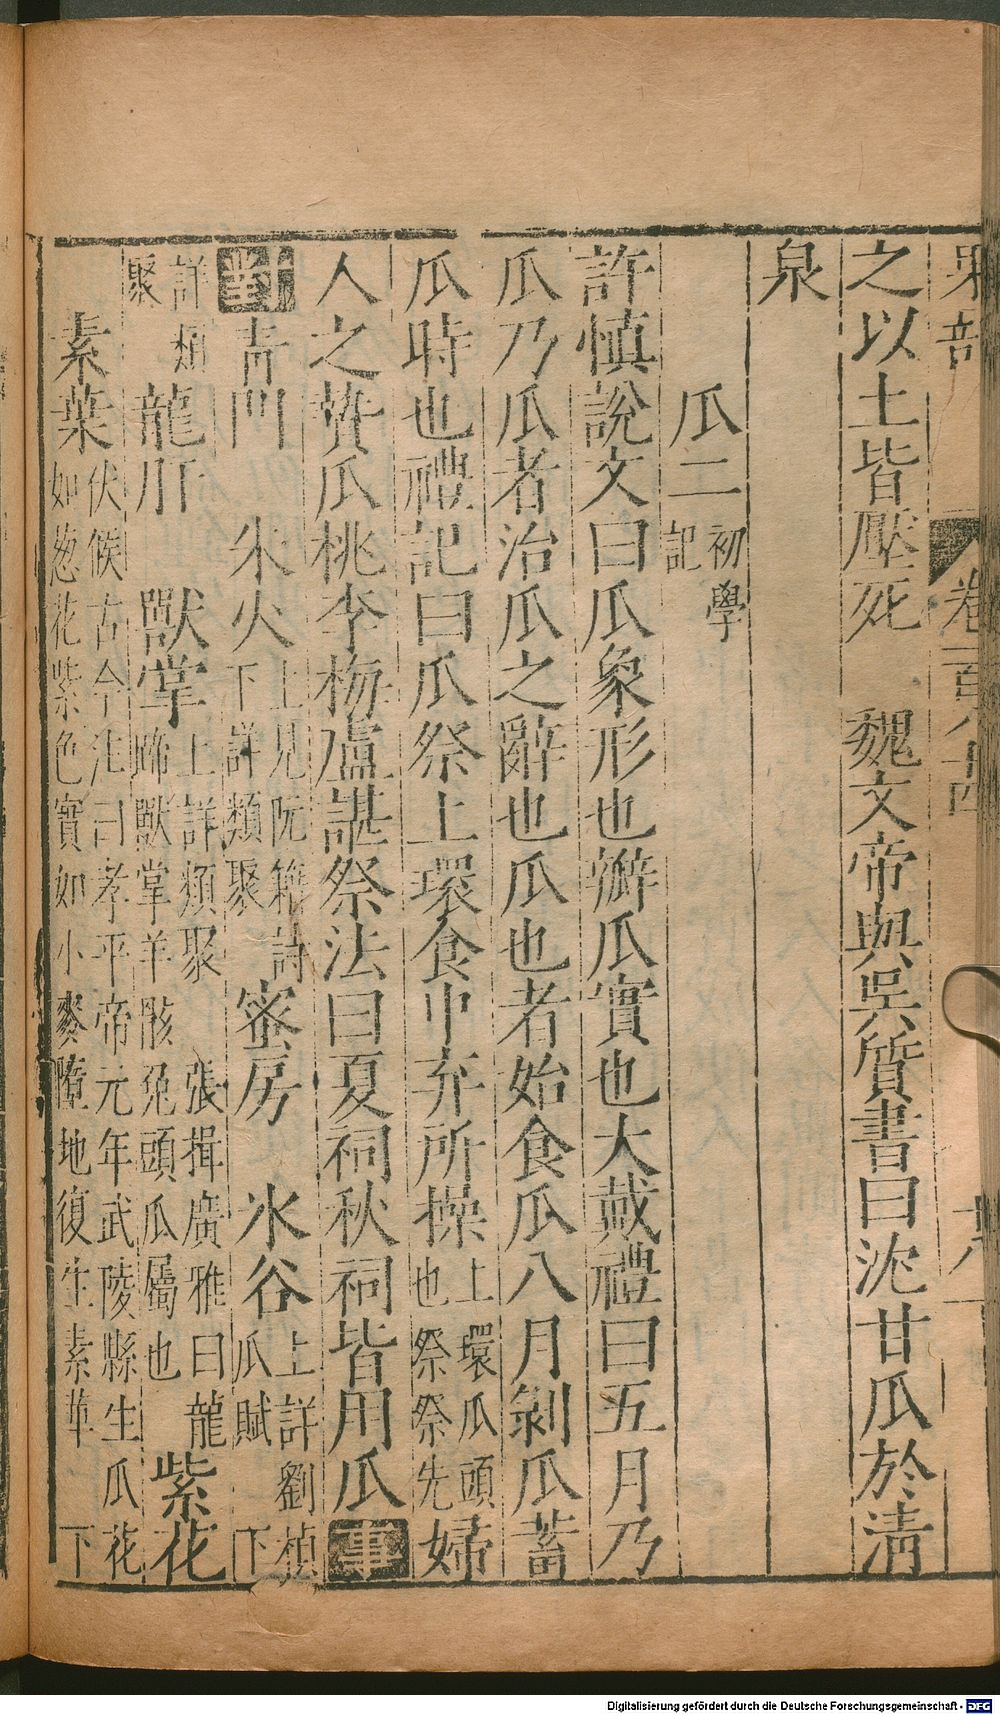 果部
卷一百八十四
十八
之以土皆壓死 魏文帝與吳質書曰沈甘瓜於清
泉
瓜二 初學記
許慎說文曰瓜象形也瓣瓜實也大戴禮曰五月乃
瓜乃瓜者治瓜之辭也瓜也者始食瓜八月剝瓜蓄
瓜時也禮記曰瓜祭上環食中弃所操 上環瓜頭也祭祭先 婦
人之贄瓜桃李梅盧諶祭法曰夏祠秋祠皆用瓜 事
對 青門 朱火 上見阮籍詩下詳類聚 蜜房 氷谷 上詳劉楨瓜賦下
詳類聚 龍肝 獸掌 上詳類聚 張揖廣雅曰龍蹄獸掌羊骹兔頭瓜屬也 紫花
素葉 伏候古今注曰孝平帝元年武陵縣生瓜花如葱花紫色實如小麥墮地復生素華下
Digitalisierung gefördert durch die Deutsche Forschungsgemeinschaft - DFG